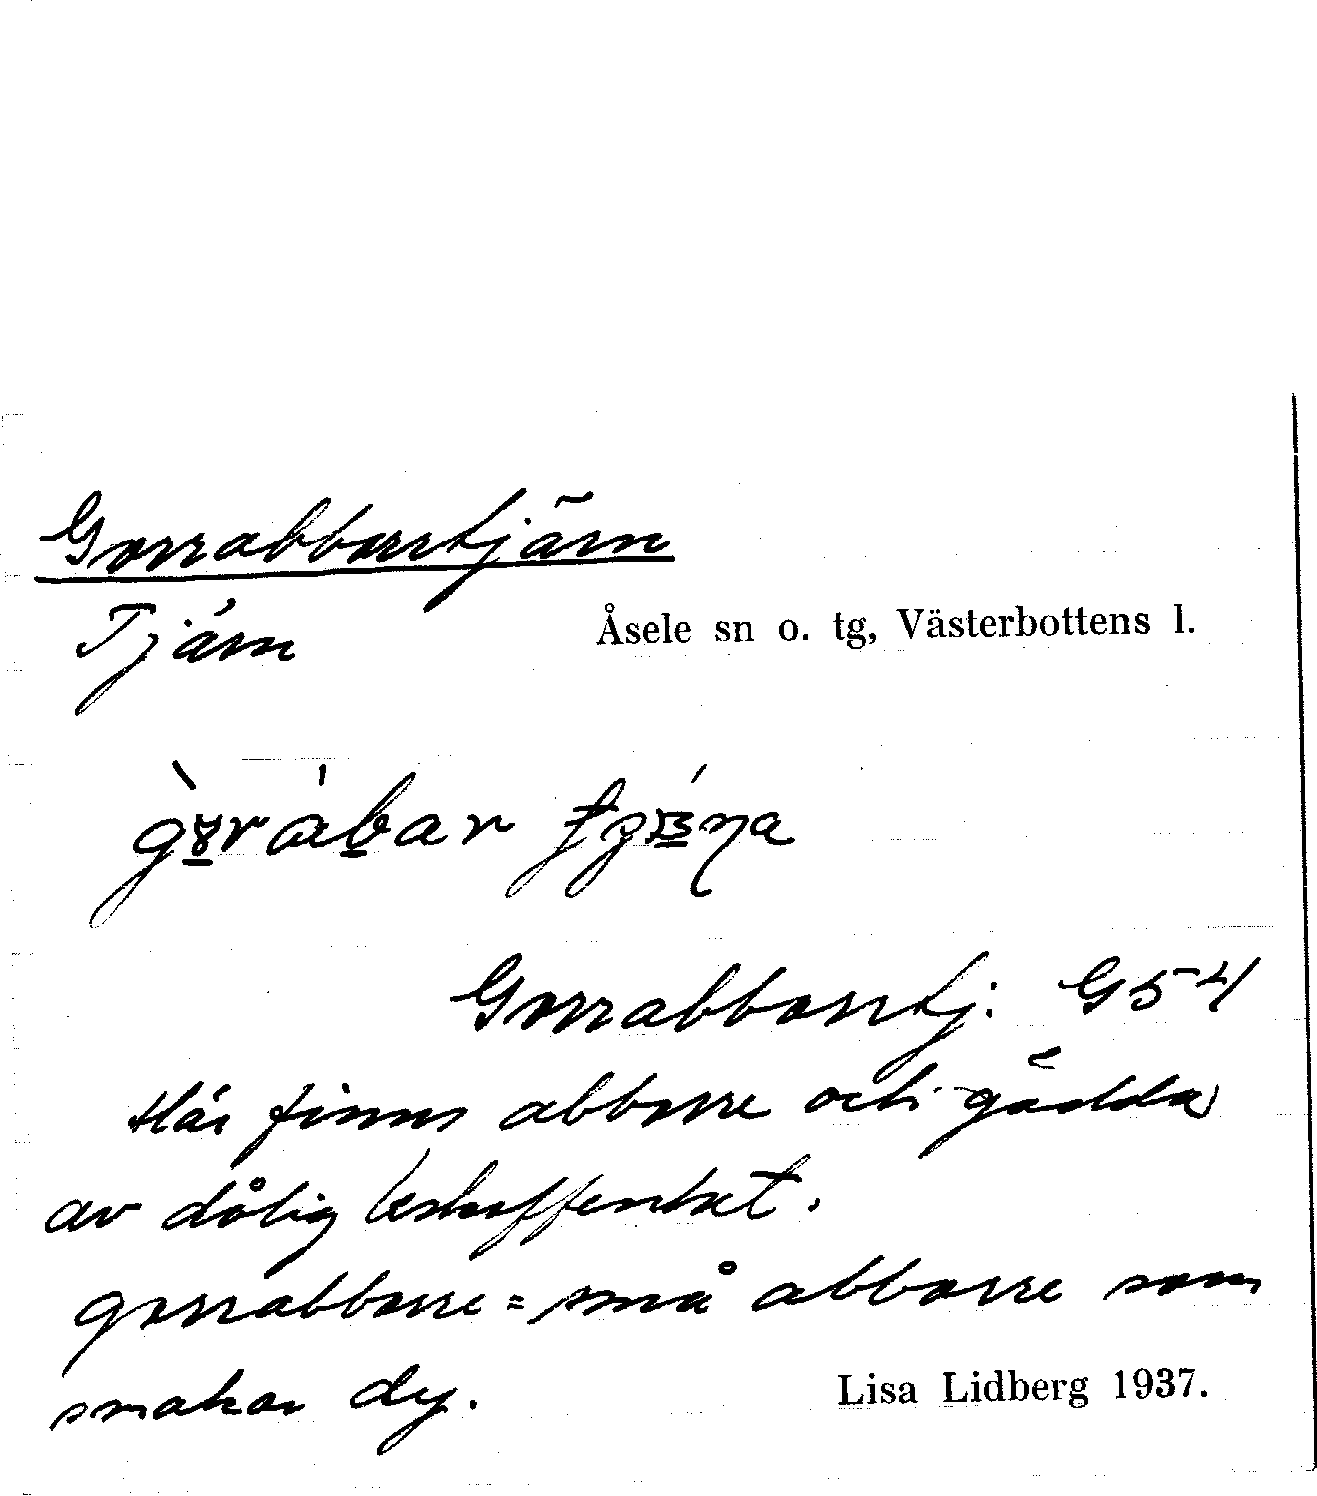 Gorrabborrtjärn
Tjärn
Åsele sn o. tg, Västerbottens l.
Gorrabborrtj: G54
Här finns abborre och gädda
av dålig beskaffenhet.
gorrabborre = små abborre som
smakar dy.
Lisa Lidberg 1937.